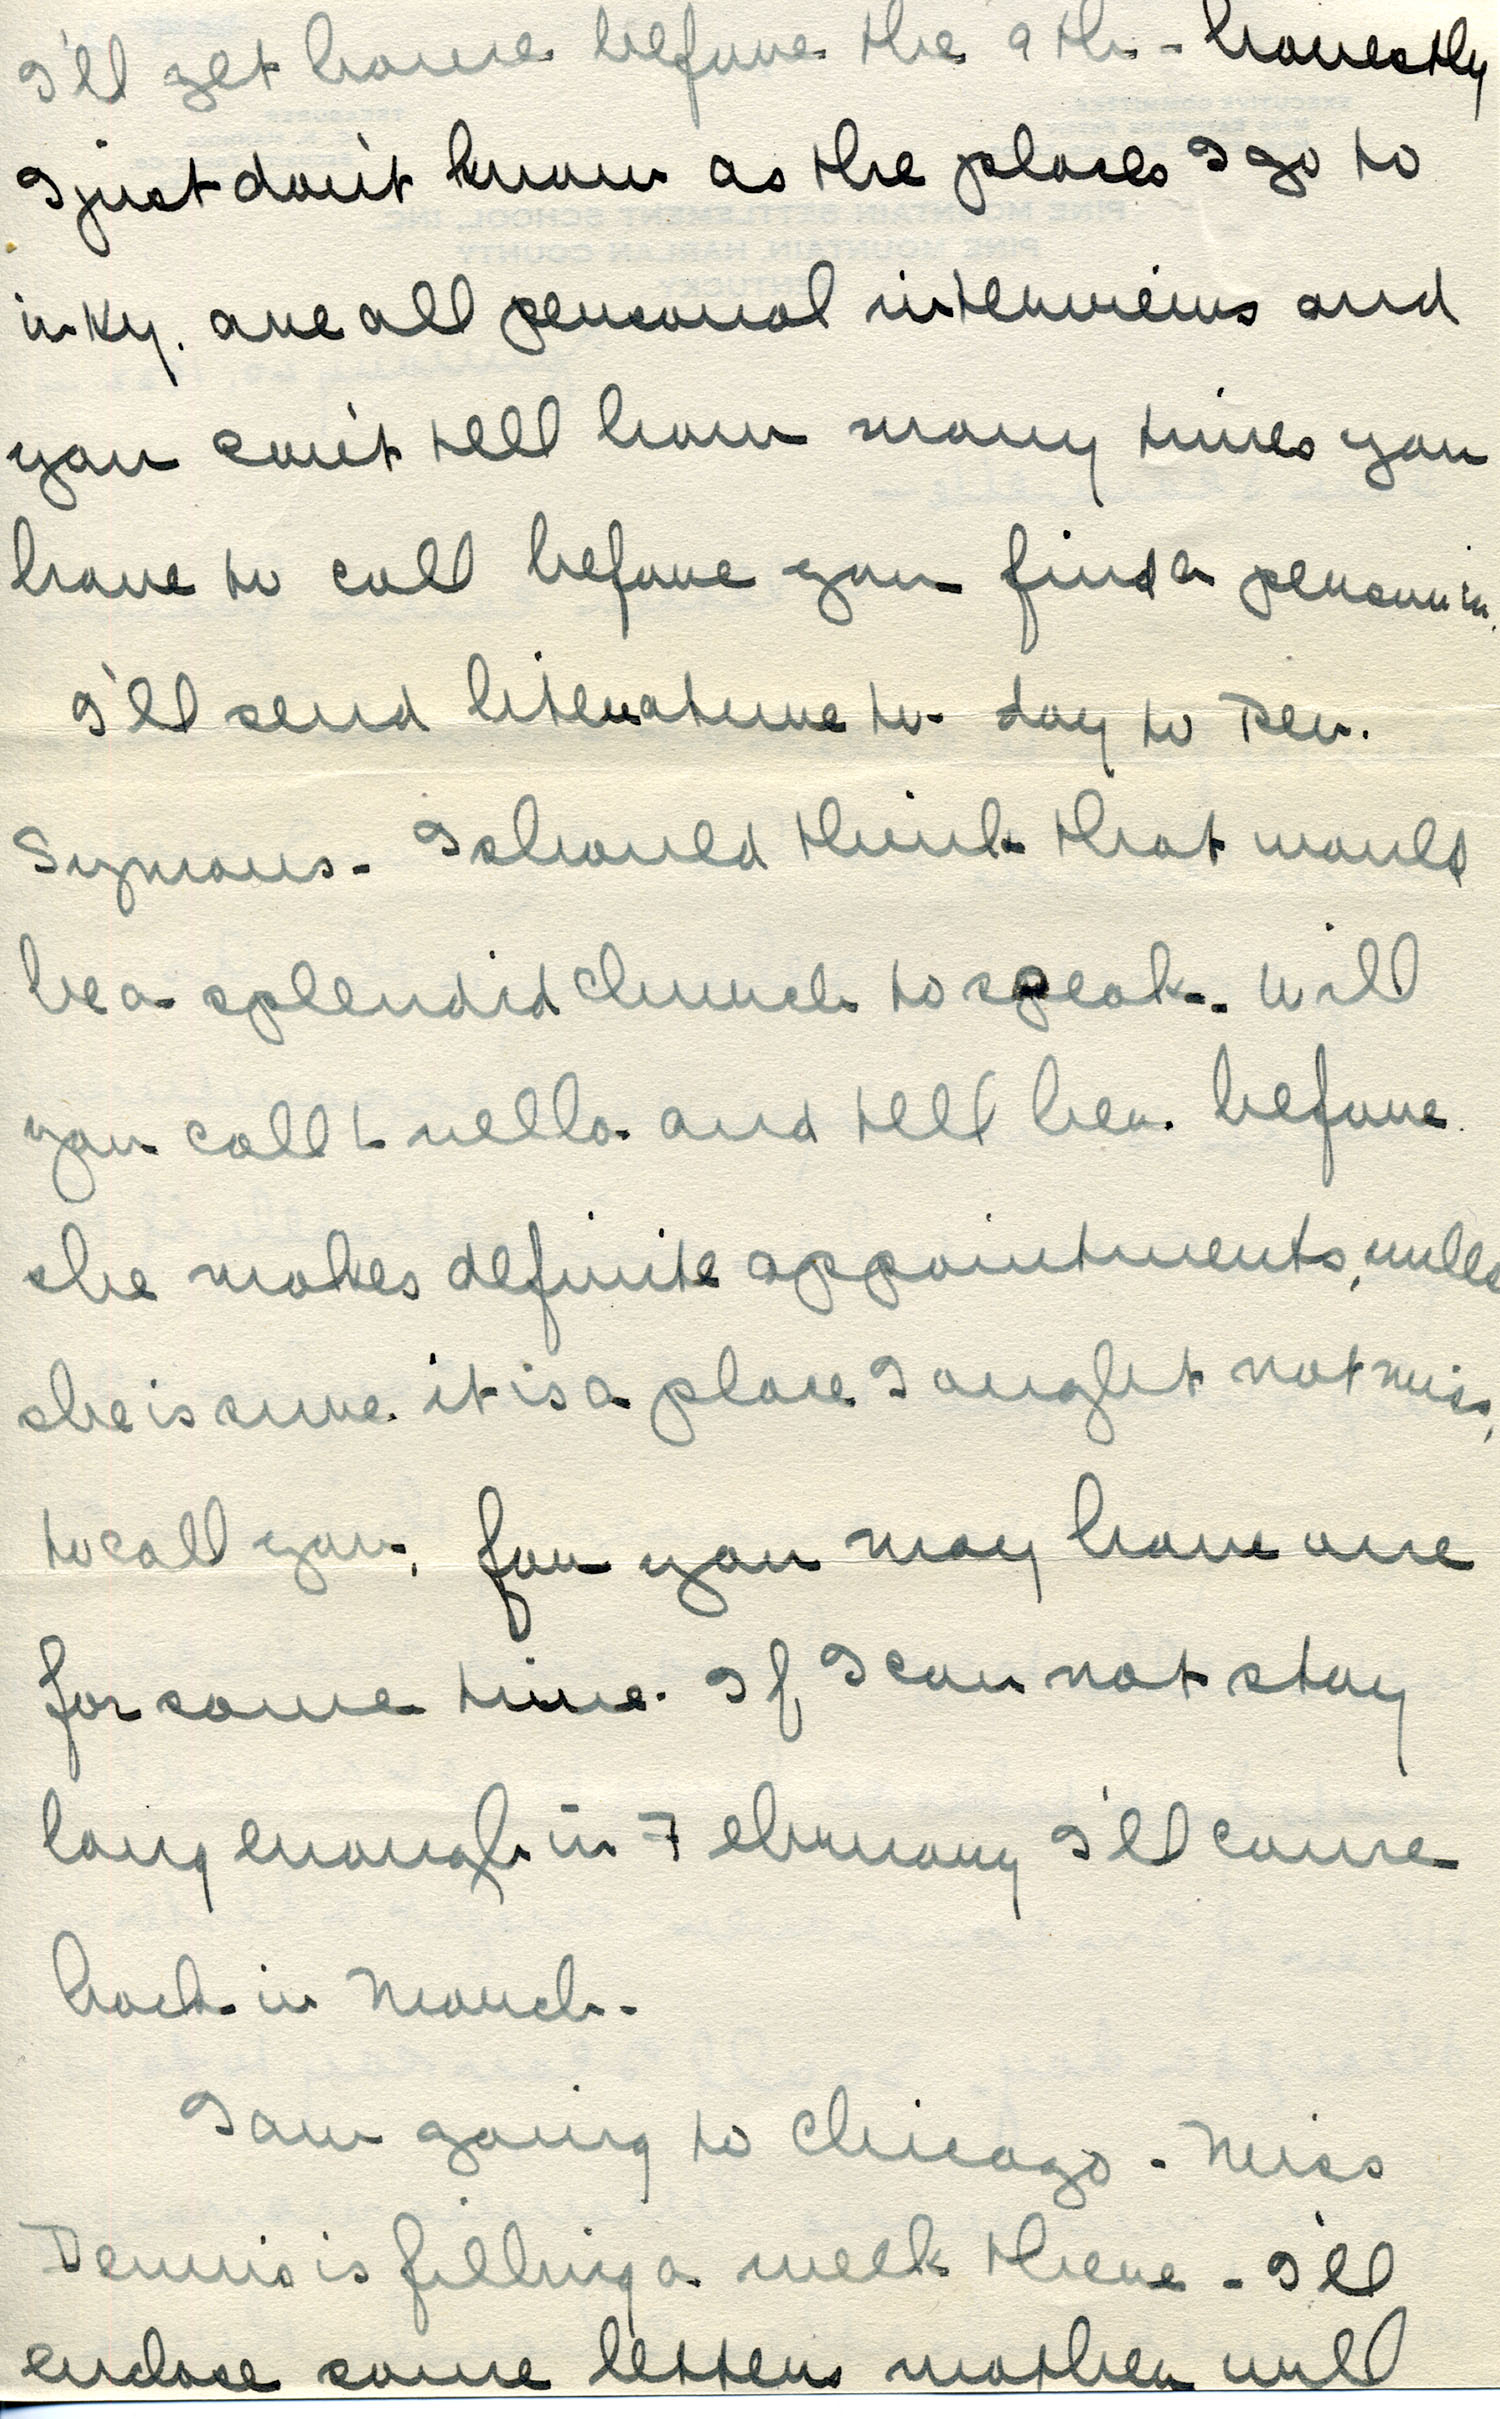 I'll get home before the 9th - honestly
I just don't know as the places I go to
in Ky. are all personal interviews and
you can't tell how many times you
have to call before you find a person in.
I'll send literature to-day to Rev.
Symons - I should think that would
be a splendid church to speak. Will
you call Luella and tell her before
she makes definite appointments, unless
she is sure it is a place I ought not miss,
to call you, for you may have one
for some time. If I can not stay
long enough in February I'll come
back in March -
I am going to Chicago - Miss
Dennis is filling a week there - I'll
enclose some letters mother will
PINE MOUNTAIN SETTLEMENT SCHOOL, INC.
PINE MOUNTAIN, HARLAN COUNTY
KENTUCKY